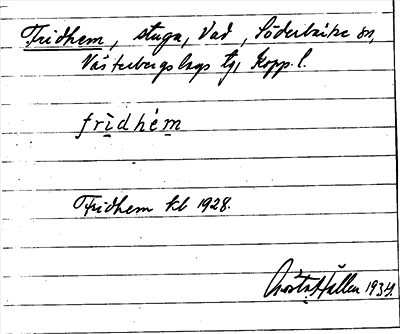 Fridhem, stuga, Vad, Söderbärke sn,
Västerbergslags tg, Kopp. l.
fridhem
Fridhem kb 1928.
Gösta Hallen 1934.